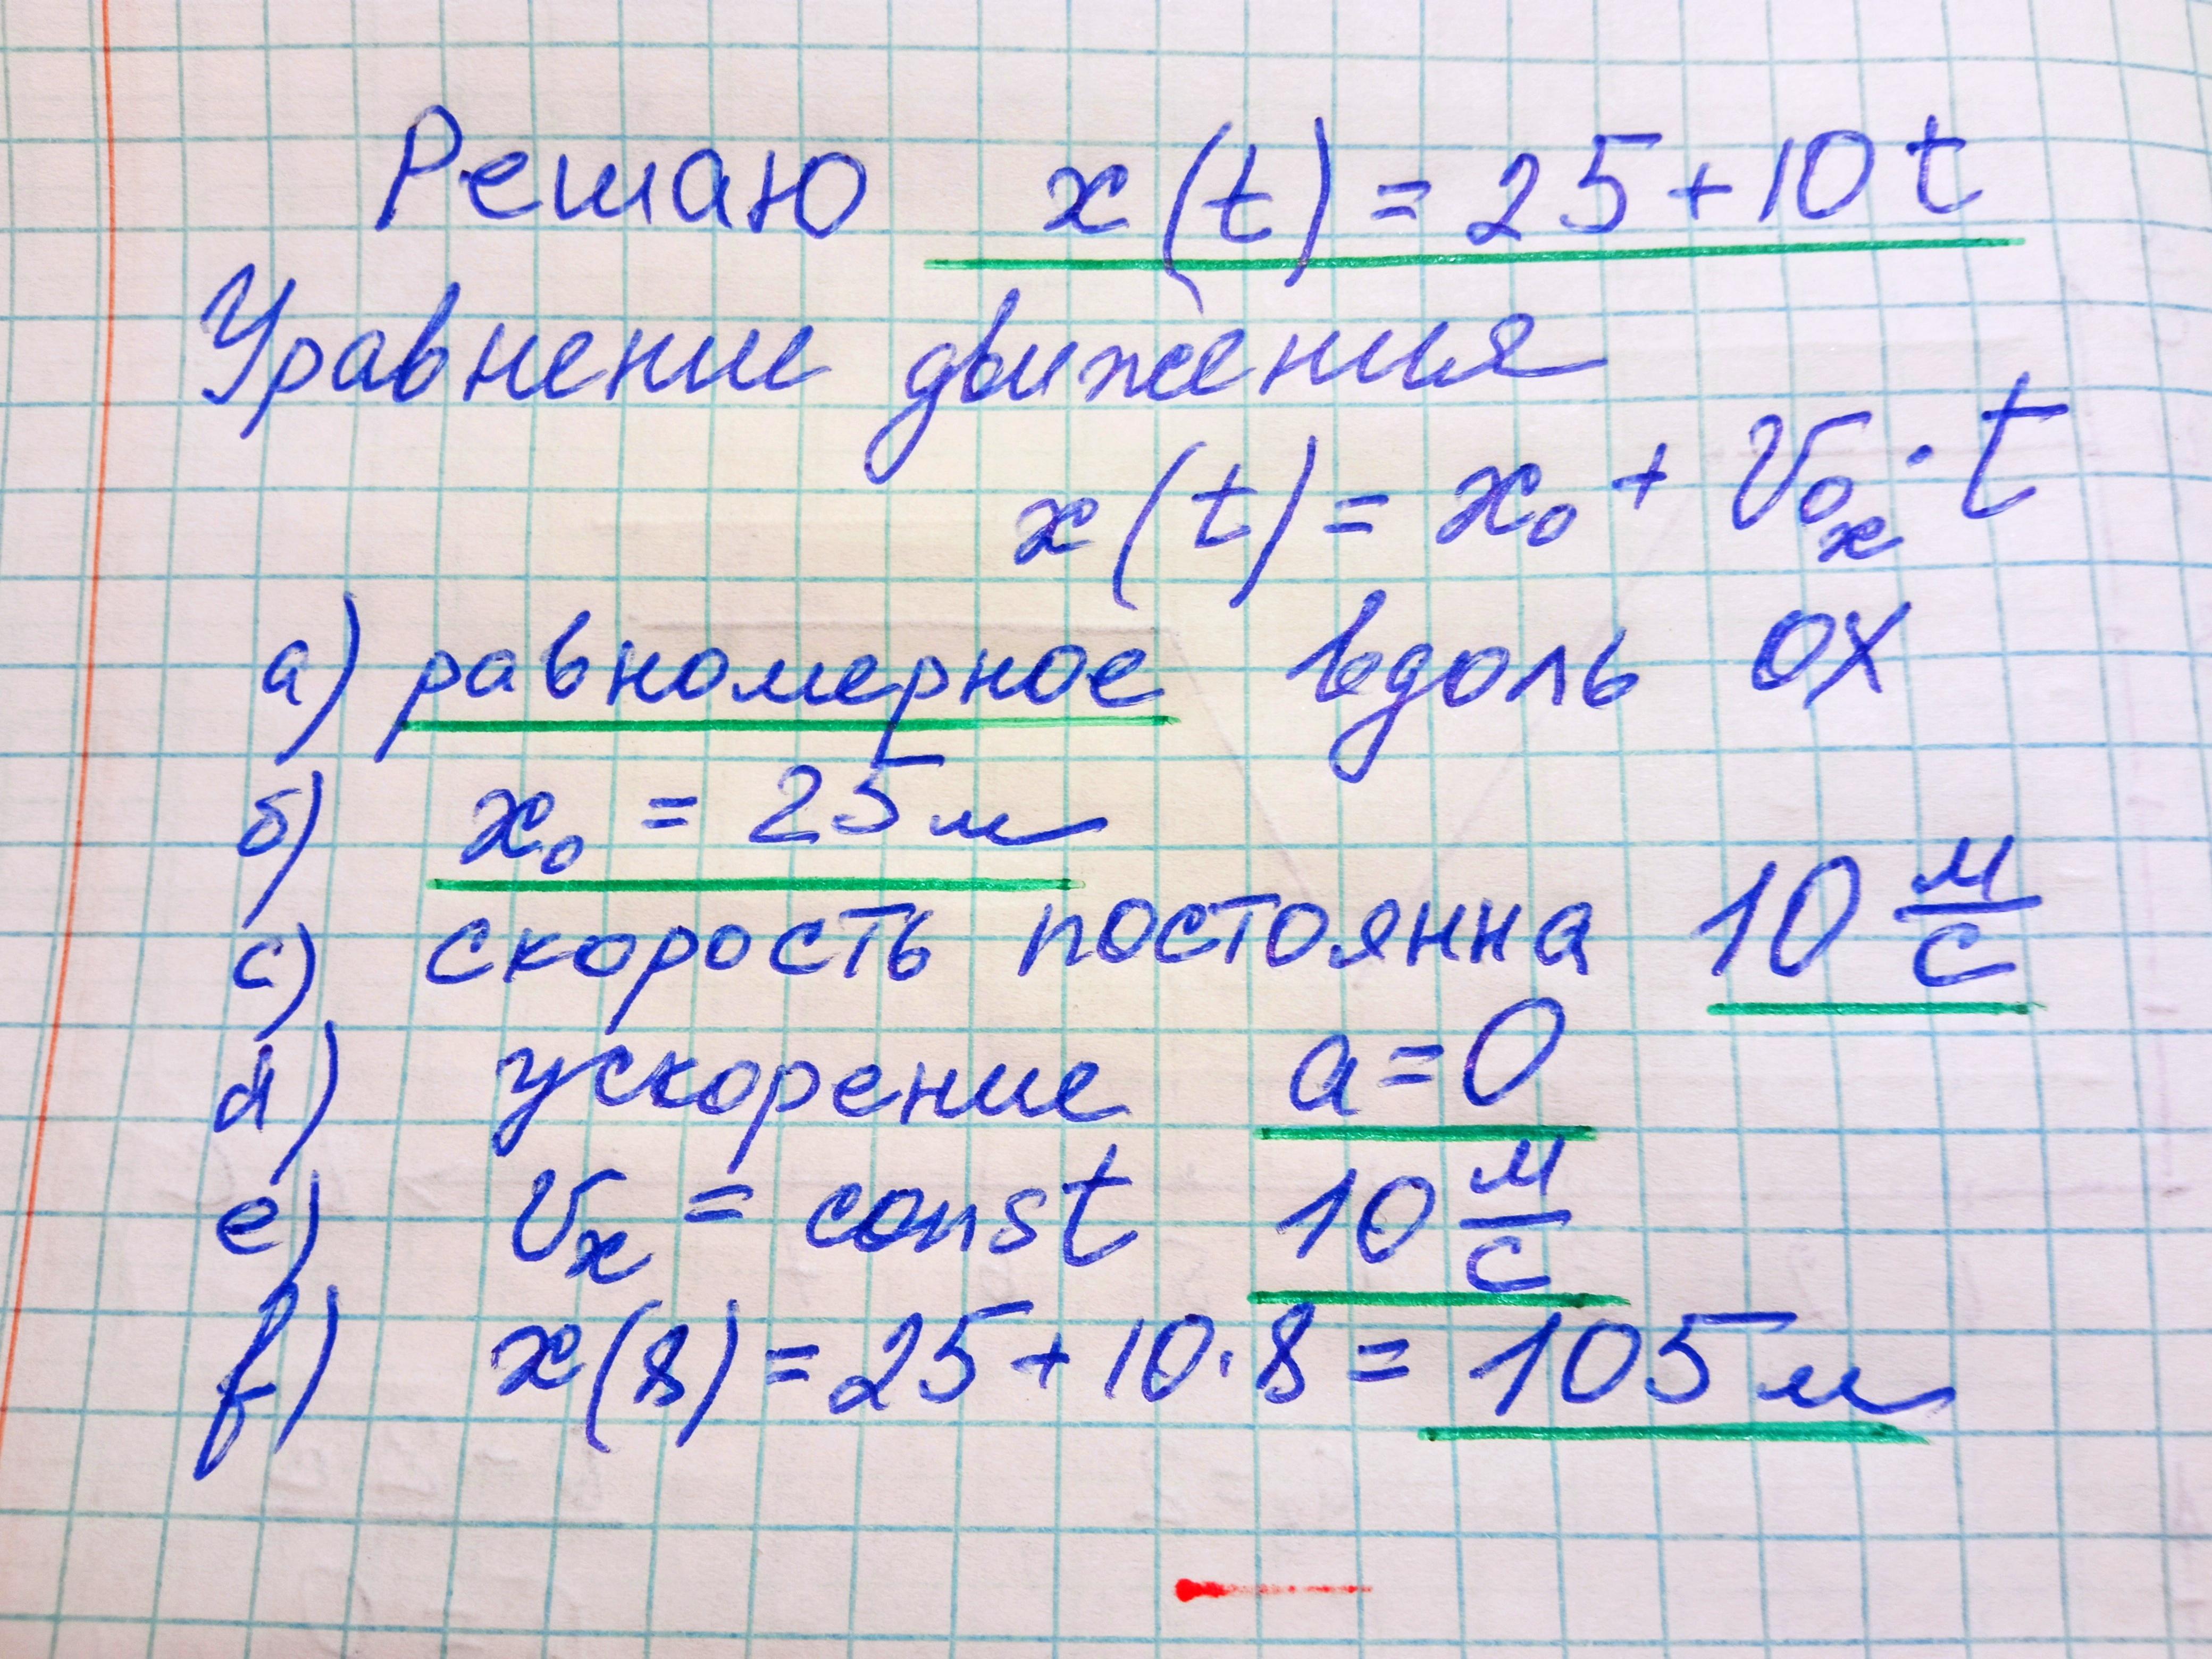 Решаю x(t) = 25 + 10t
Уравнение движения
x(t) = x₀ + v₀ₓ · t
а) равномерное вдоль ОХ
б) x₀ = 25 м
c) скорость постоянна 10 м/с
d) ускорение a = 0
e) vₓ = const 10 м/с
f) x(8) = 25 + 10 · 8 = 105 м